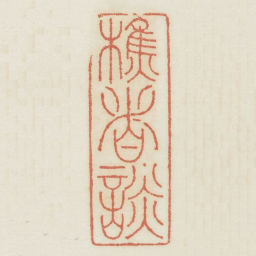 樵者談